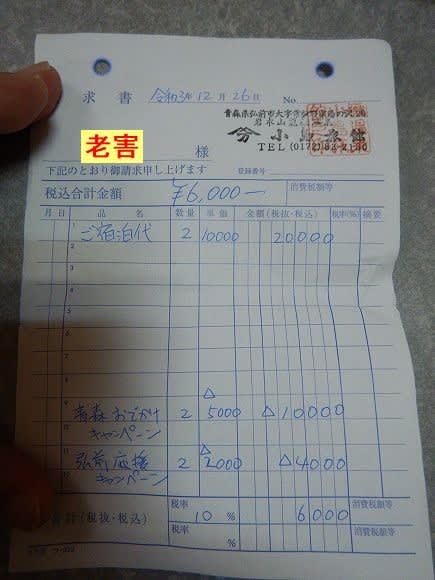 求書 令和3年12月26日 No.
青森県弘前市大字
小島旅館
TEL (0172) 83-2130
老害 様
下記のとおり御請求申し上げます 登録番号
税込合計金額 ¥6,000— 消費税額等
月 日 品名 数量 単価 金額(税抜・税込) 税率(%) 摘要
ご宿泊代 2 10000 20000
青森おでかけ 2 △5000 △10000
キャンペーン
弘前応援 2 △2000 △4000
キャンペーン
合計(税抜・税込) 税率 10 % 6000 消費税額等
税率 % 消費税額等